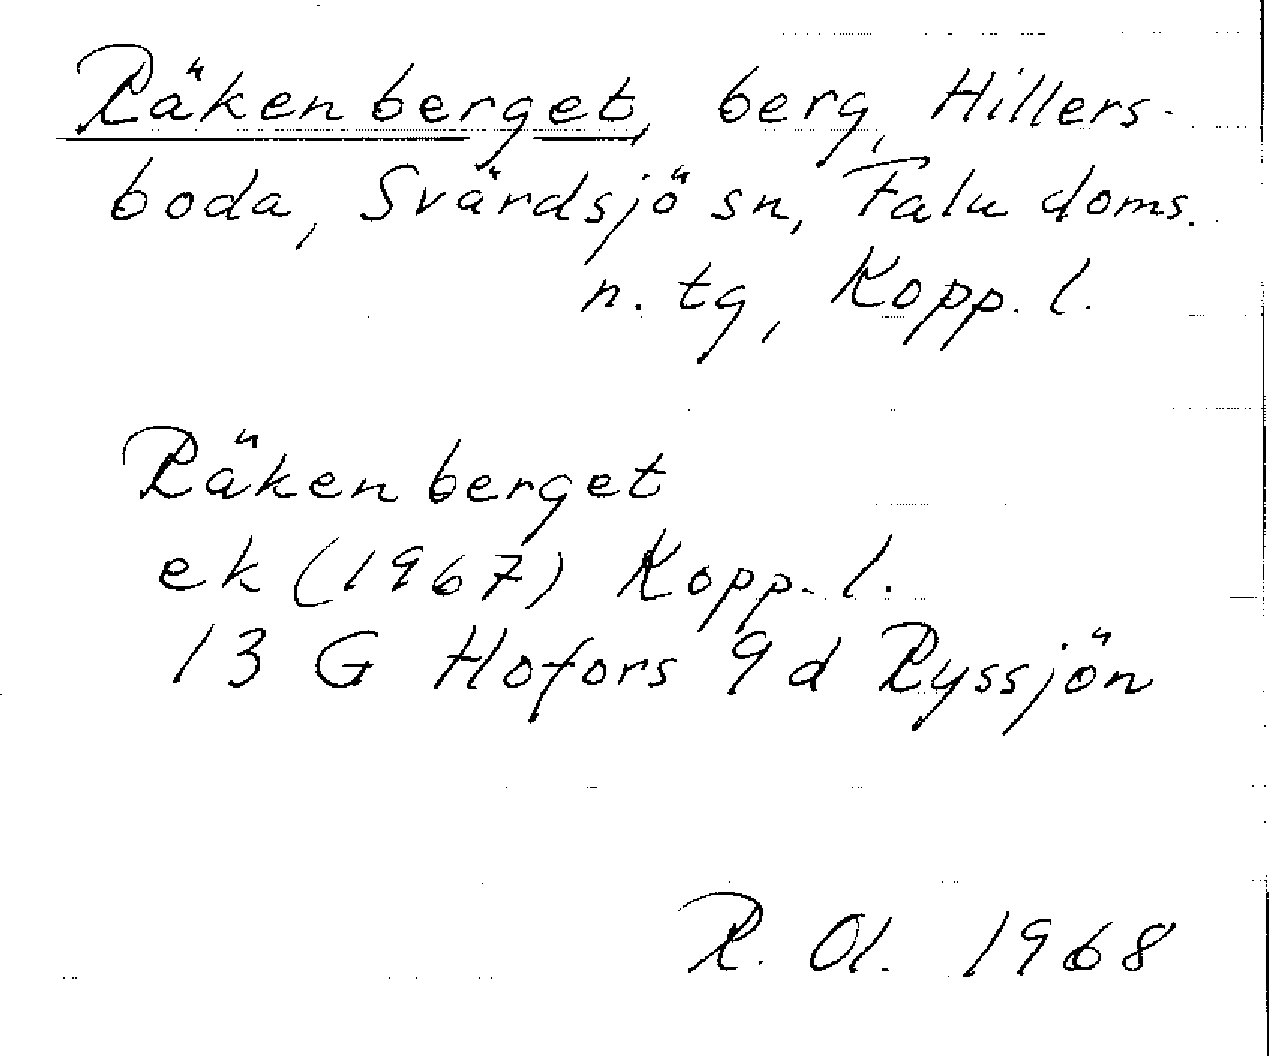 Räkenberget, berg, Hillers-
boda, Svärdsjö sn, Falu doms.
n. tg, Kopp. l.
Räkenberget
ek (1967) Kopp. l.
13 G Hofors 9 d Ryssjön
R. Ol. 1968